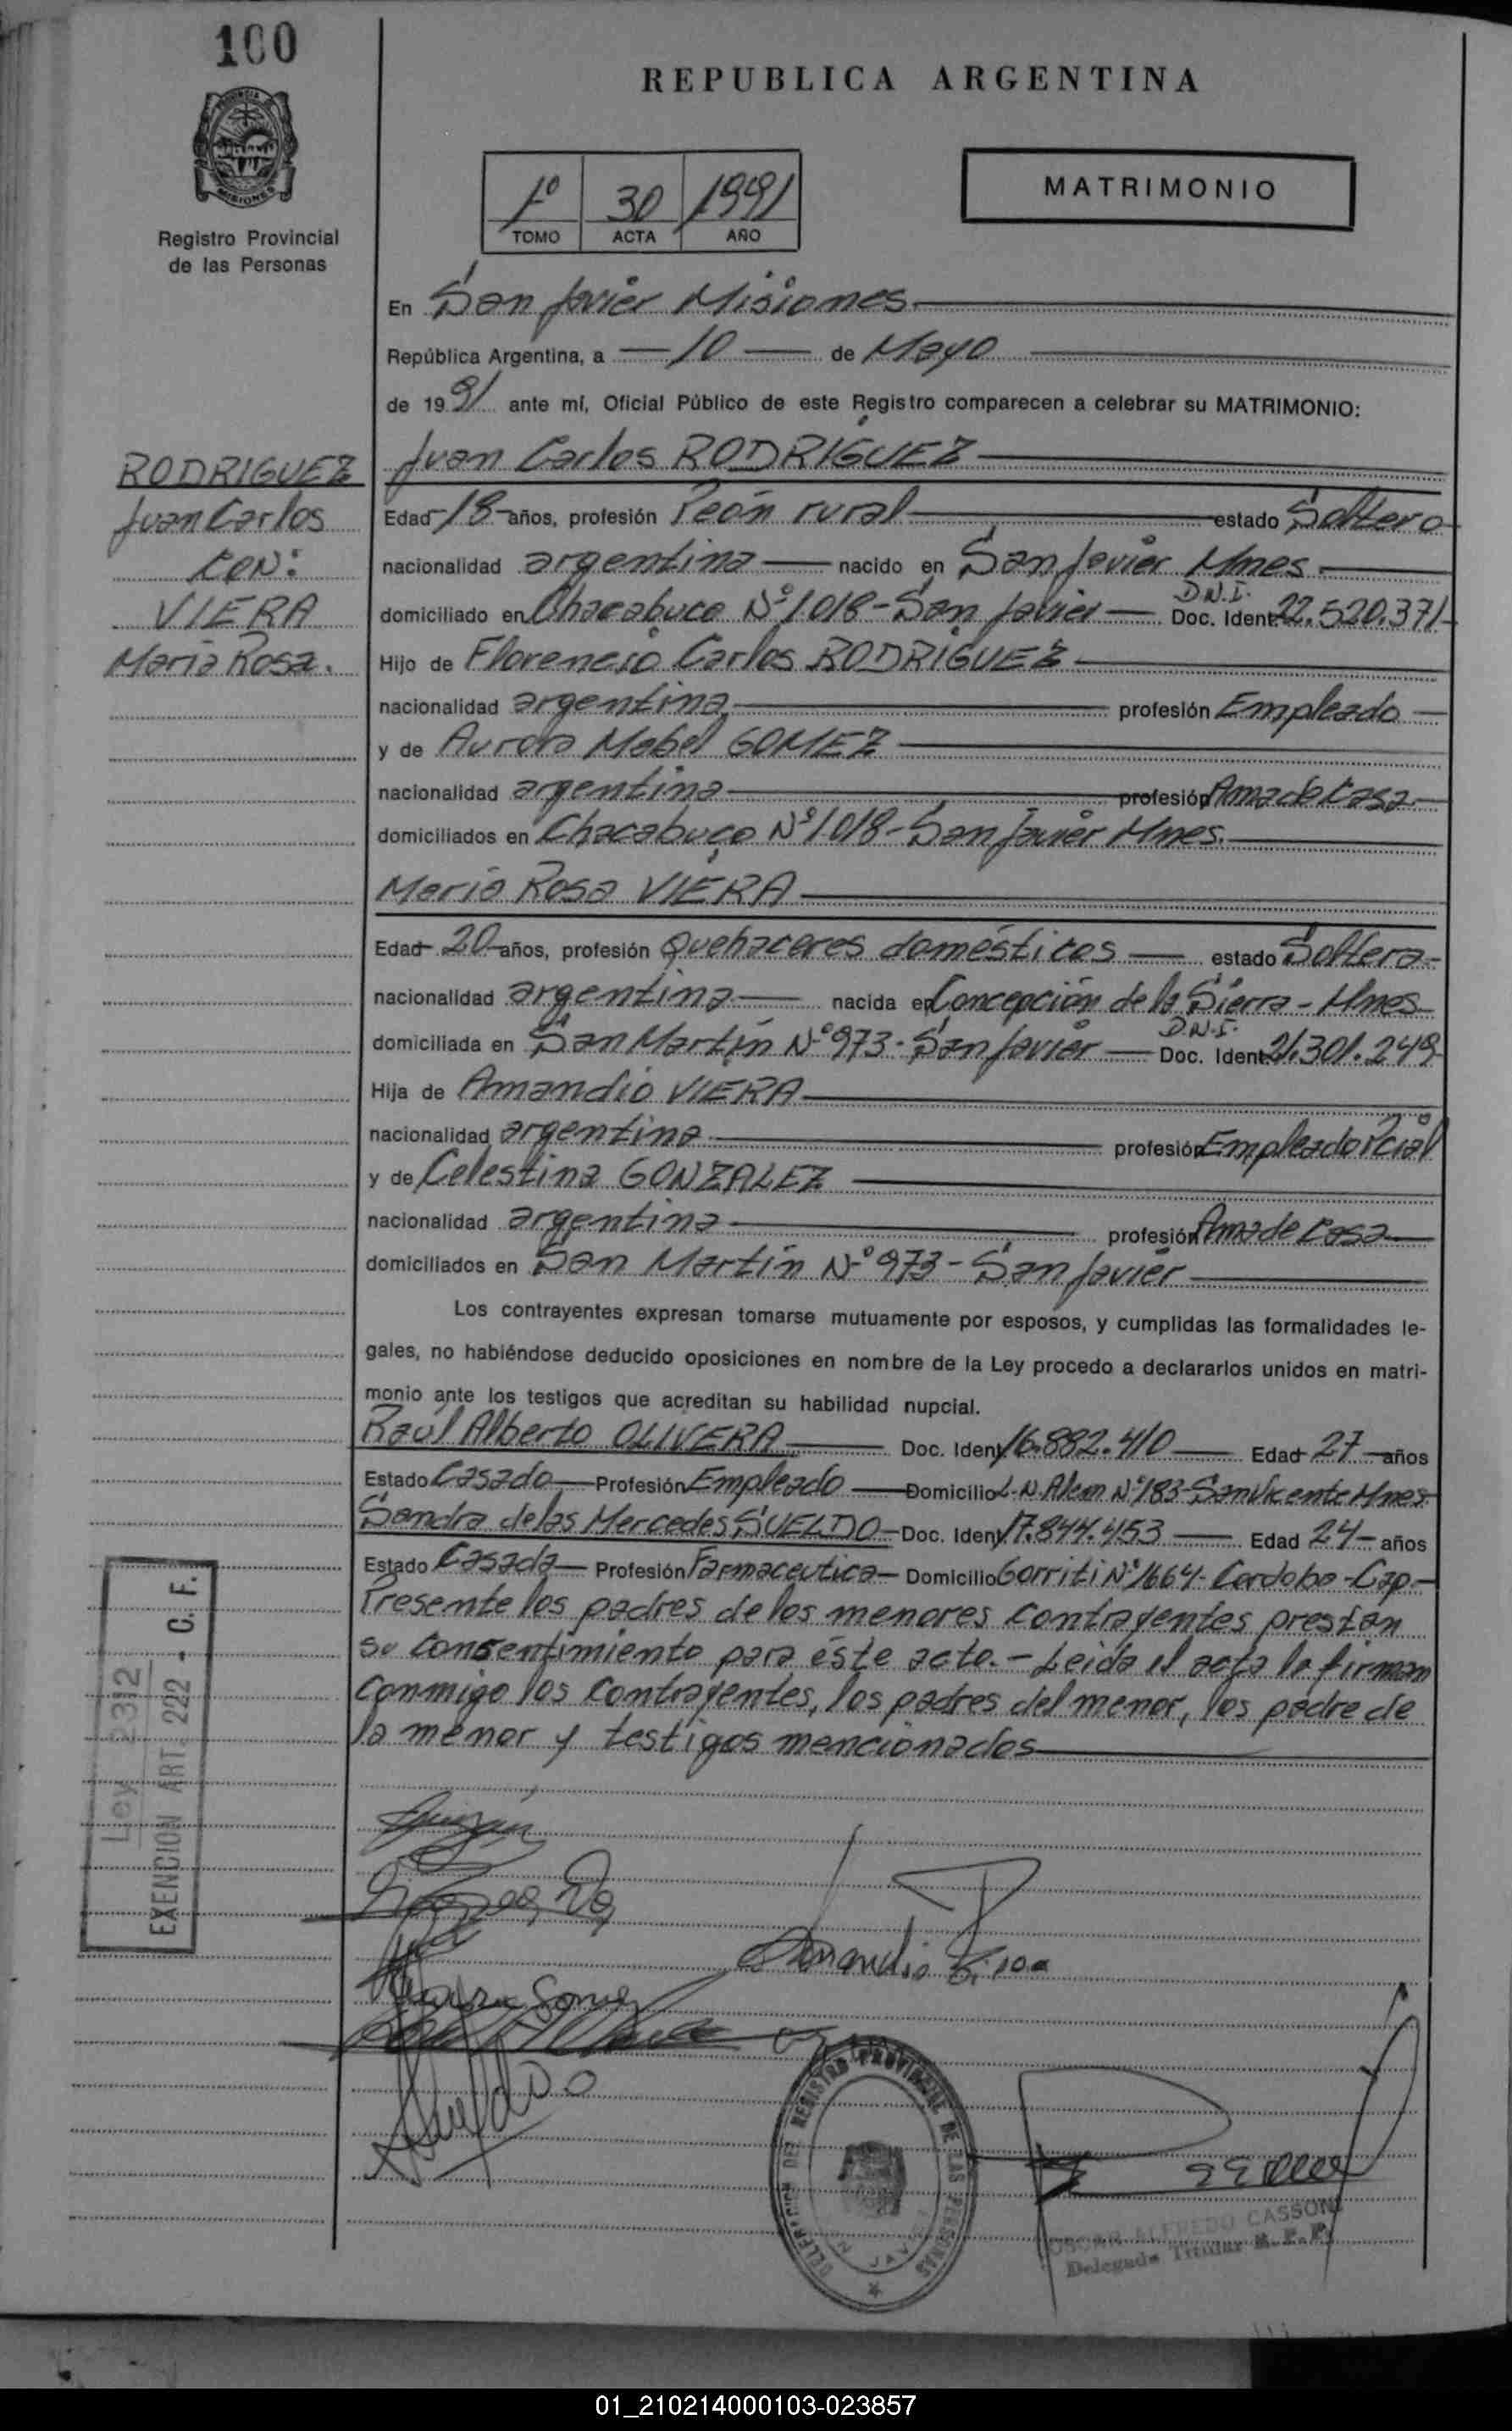 100
REPUBLICA ARGENTINA
MISIONES
Registro Provincial
de las Personas
1º 30 1991
TOMO ACTA AÑO
MATRIMONIO
En San Javier Misiones
República Argentina, a 10 de Mayo
de 1991 ante mí, Oficial Público de este Registro comparecen a celebrar su MATRIMONIO:
RODRIGUEZ
Juan Carlos
CON:
VIERA
María Rosa.
Juan Carlos RODRIGUEZ
Edad 18 años, profesión Peón rural estado Soltero
nacionalidad argentina nacido en San Javier Mnes.
domiciliado en Chacabuco Nº1018-San Javier D.N.I. Doc. Ident. 22.520.371
Hijo de Florencio Carlos RODRIGUEZ
nacionalidad argentina profesión Empleado
y de Aurora Mabel GOMEZ
nacionalidad argentina profesión Ama de Casa
domiciliados en Chacabuco Nº1018-San Javier Mnes.
María Rosa VIERA
Edad 20 años, profesión Quehaceres domésticos estado Soltera
nacionalidad argentina nacida en Concepción de la Sierra - Mnes
domiciliada en San Martín Nº973-San Javier D.N.I. Doc. Ident. 21.301.249
Hija de Amandio VIERA
nacionalidad argentina profesión Empleado Pcial
y de Celestina GONZALEZ
nacionalidad argentina profesión Ama de Casa
domiciliados en San Martín Nº973-San Javier
Los contrayentes expresan tomarse mutuamente por esposos, y cumplidas las formalidades le-
gales, no habiéndose deducido oposiciones en nombre de la Ley procedo a declararlos unidos en matri-
monio ante los testigos que acreditan su habilidad nupcial.
Raúl Alberto OLIVERA Doc. Ident. 16.882.410 Edad 27 años
Estado Casado Profesión Empleado Domicilio L.N.Alem Nº183-San Vicente Mnes
Sandra de las Mercedes SUELDO Doc. Ident. 17.844.453 Edad 24 años
Estado Casada Profesión Farmaceutica Domicilio Gorriti Nº1664-Cordoba-Cap.
Presente los padres de los menores contrayentes prestan
su consentimiento para éste acto.- Leida el acta la firman
conmigo los contrayentes, los padres del menor, los padre de
la menor y testigos mencionados
Ley 2312
EXENCION ART. 222 - C. F.
Amandio
Sueldo
DELEGACION DEL REGISTRO PROVINCIAL DE LAS PERSONAS
SAN JAVIER
OSCAR ALFREDO CASSONI
Delegado Titular R.P.P.
01_210214000103-023857